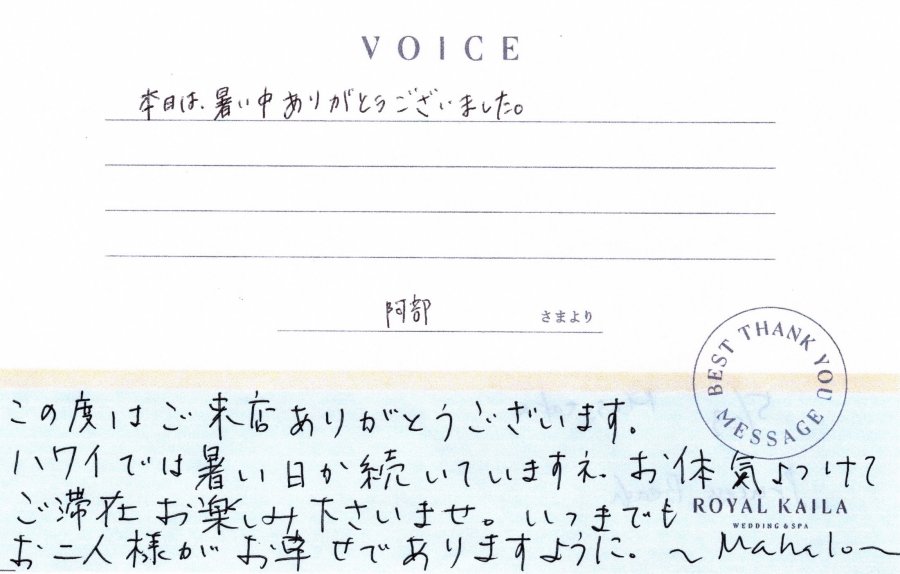 VOICE
本日は、暑い中ありがとうございました。
阿部 さまより
BEST THANK YOU MESSAGE
この度はご来店ありがとうございます。
ハワイでは暑い日が続いていますネ、お体気をつけて
ご滞在お楽しみ下さいませ。いつまでも
ROYAL KAILA
WEDDING & SPA
お二人様がお幸せでありますように。〜Mahalo〜